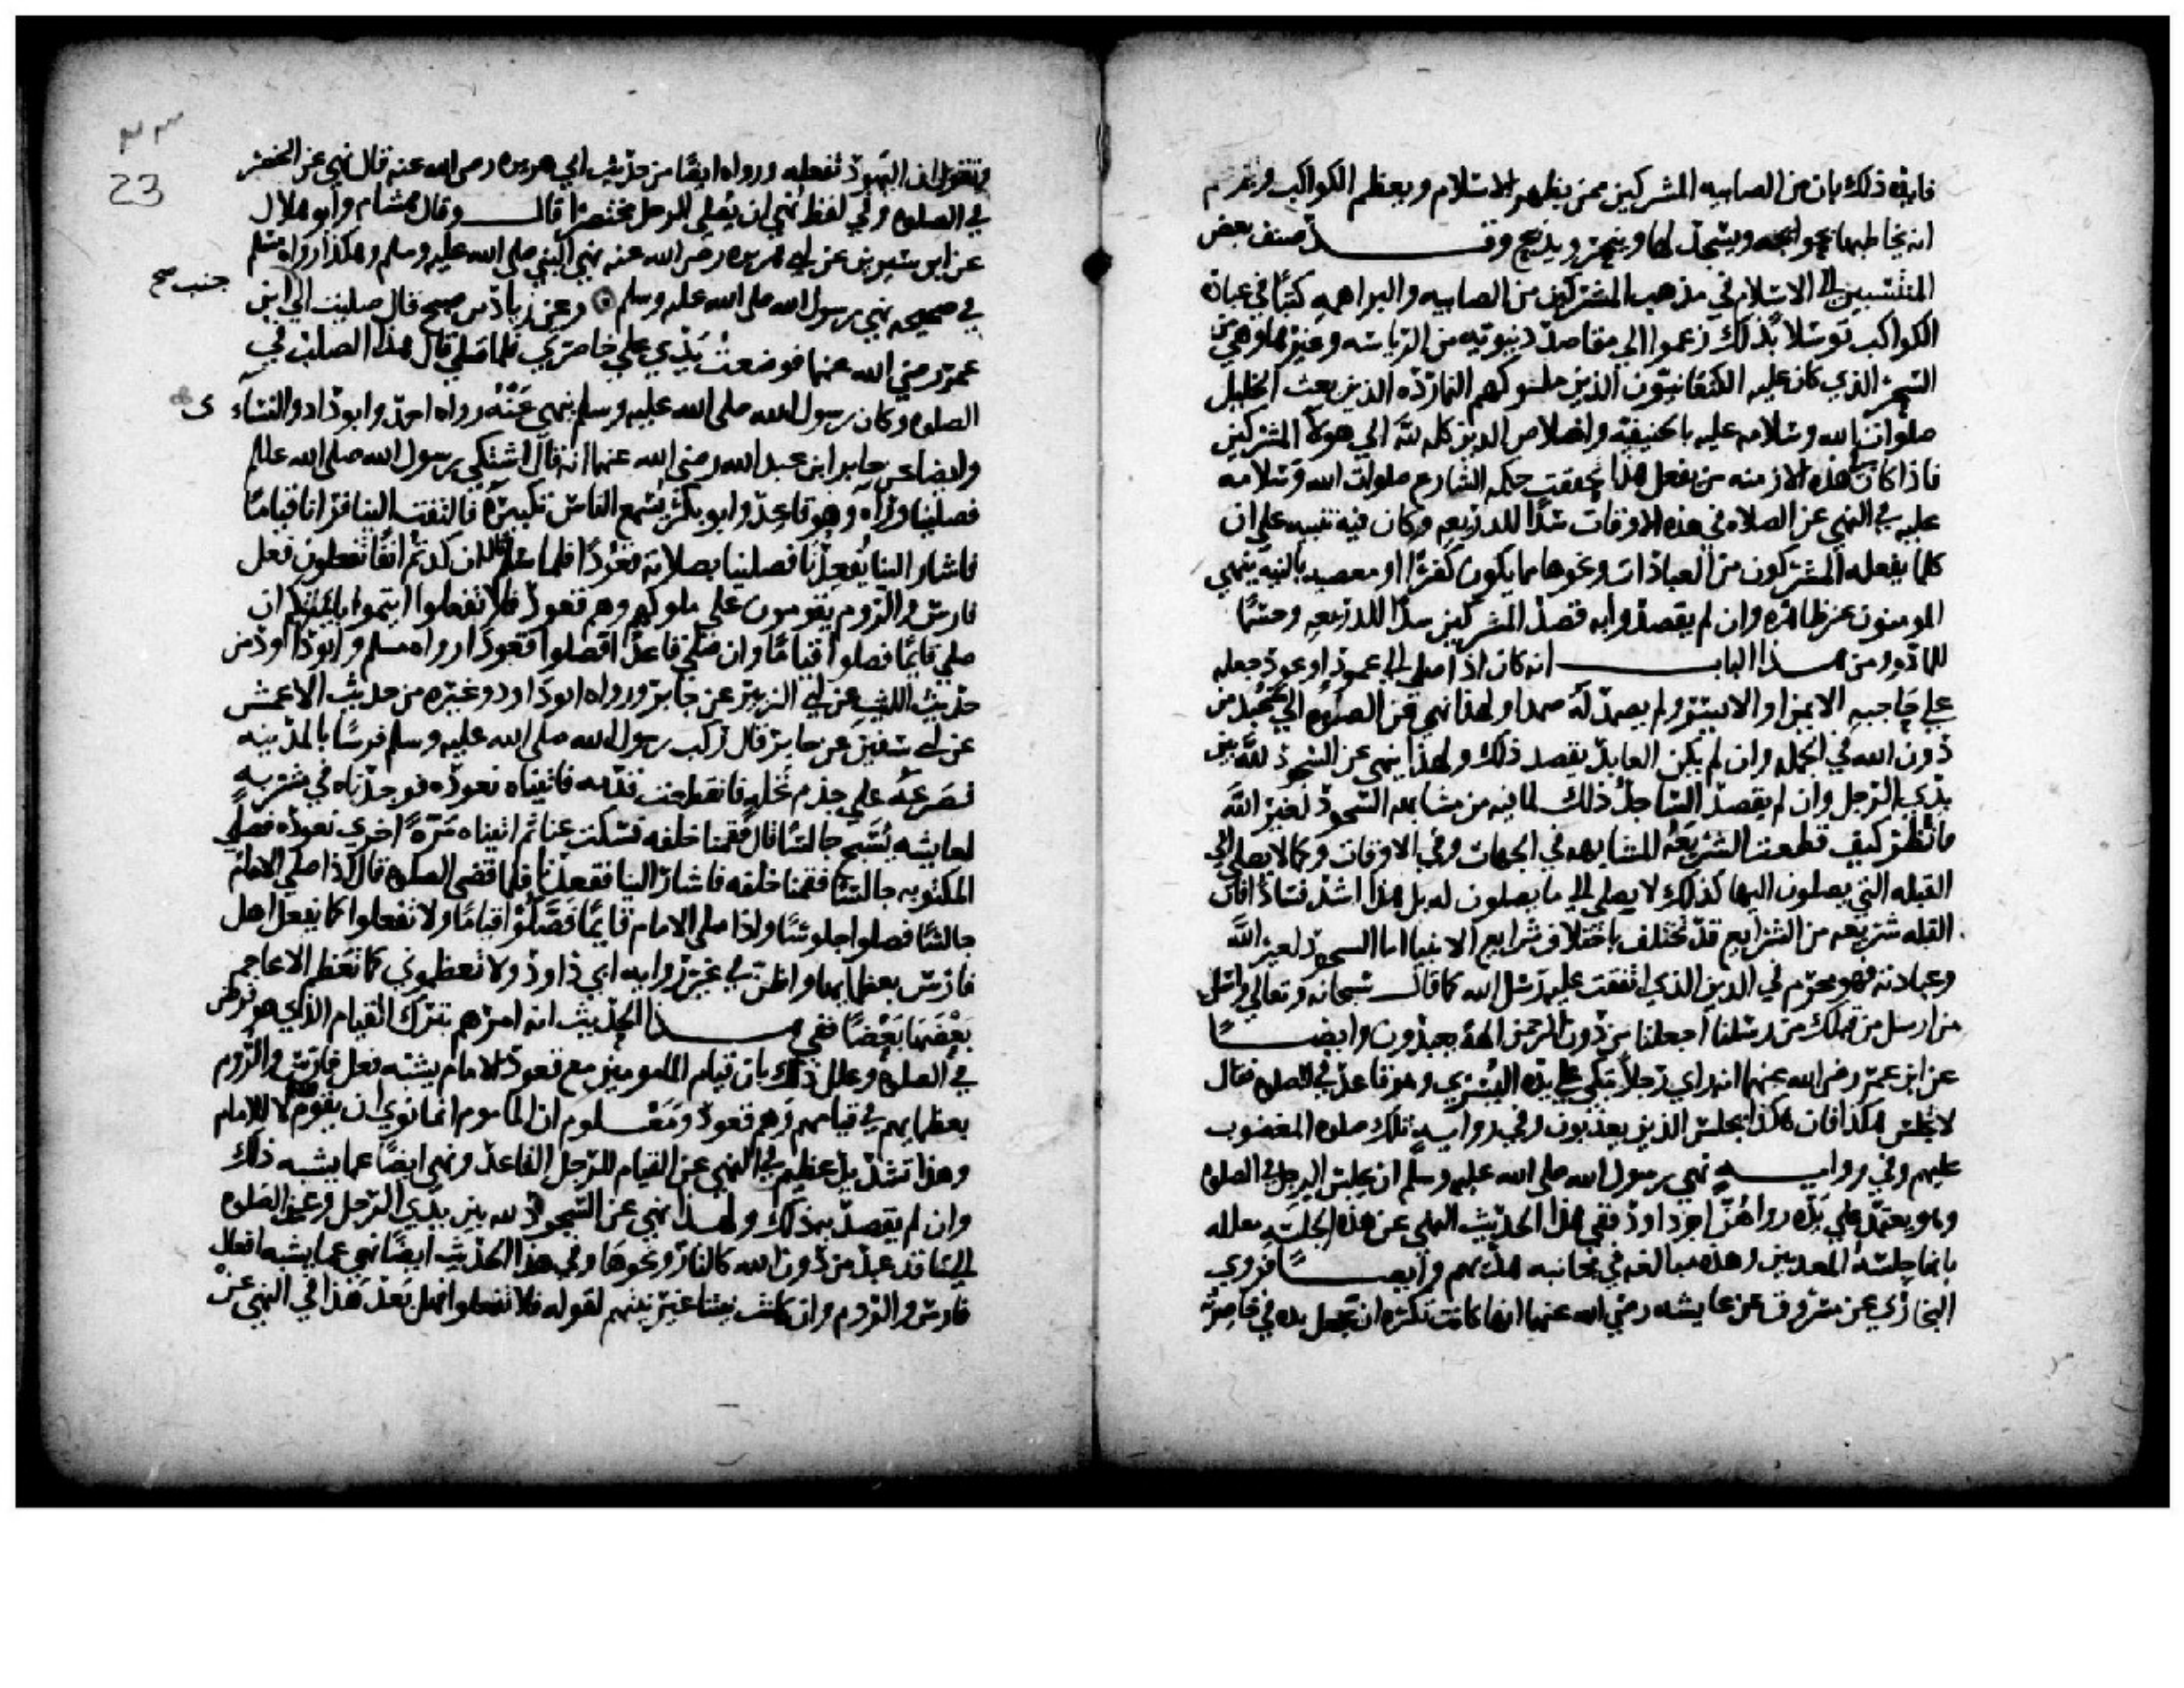 فايده ذلك بان من الصابيه المشركين ممن يظهر الاسلام ويعظم الكواكب ويزعم
انه يخاطبها بحوايجه ويسجد لها وينحر ويذبح وقد صنف بعض
المنتسبين الى الاسلام في مذهب المشركين من الصابيه والبراهمه كتبا في عبادة
الكواكب توسلا بذلك زعموا الى مقاصد دنيويه من الرياسه وغيرها وهي من
السحر الذي كان عليه الكنعانيون الذين ملوكهم النمارده الذين بعث الخليل
صلوات الله وسلامه عليه بالحنيفيه واخلاص الدين كله لله الى هولا المشركين
فاذا كان في هذه الازمنه من يفعل هذا تحققت حكمه الشارع صلوات الله وسلامه
عليه في النهي عن الصلاه في هذه الاوقات سدا للذريعه وكان فيه تنبيه على ان
كلما يفعله المشركون من العبادات ونحوها مما يكون كفرا او معصيه بالنيه ينهى
المومنون عن ظاهره وان لم يقصدوا به قصد المشركين سدا للذريعه وحسما
للماده ومن هذا الباب انه كان اذا صلى الى عمود او عود جعله
على حاجبه الايمن او الايسر ولم يصمد له صمدا ولهذا نهى عن الصلوه الى ما عبد من
دون الله في الجمله وان لم يكن العابد يقصد ذلك ولهذا ينهى عن السجود لله بين
يدي الرجل وان لم يقصد الساجد ذلك لما فيه من مشابهه السجود لغير الله
فانظر كيف قطعت الشريعه المشابهه في الجهات وفي الاوقات وكما لا يصلى الى
القبله التي يصلون اليها كذلك لا يصلى الى ما يصلون له بل هذا اشد فسادا فان
القبله شريعه من الشرايع قد تختلف باختلاف شرايع الانبيا اما السجود لغير الله
وعبادته فهو محرم في الدين الذي اتفقت عليه رسل الله كما قال سبحانه وتعالى واسل
من ارسل من قبلك من رسلنا اجعلنا من دون الرحمن الهة يعبدون وايضا
عن ابن عمر رضى الله عنهما انه راى رجلا يتكى على يده اليسرى وهو قاعد في الصلوه فقال
لا تجلس هكذا فان هكذا يجلس الذين يعذبون وفي روايه تلك صلوه المغضوب
عليهم وفي روايه نهى رسول الله صلى الله عليه وسلم ان يجلس الرجل في الصلوه
وهو يعتمد على يده رواهن ابو داود ففي هذا الحديث النهى عن هذه الجلسه معلله
بانها جلسه المعذبين وهذه مبالغه في مجانبه هديهم وايضا فروى
البخاري عن مسروق عن عايشه رضى الله عنها انها كانت تكره ان يجعل يده في خاصرته
23
وتقول ان اليهود تفعله ورواه ايضا من حديث ابي هريره رضى الله عنه قال نهى عن الخصر
في الصلوه وفي لفظ نهى ان يصلى الرجل مختصرا قال وقال هشام وابو هلال
عن ابن سيرين عن ابي هريره رضى الله عنه نهى النبي صلى الله عليه وسلم وهكذا رواه مسلم
في صحيحه نهى رسول الله صلى الله عليه وسلم وعن زياد بن صبيح قال صليت الى ابن
جنب صح
عمر رضى الله عنهما فوضعت يدي على خاصرتي فلما صلى قال هذا الصلب في
الصلوه وكان رسول الله صلى الله عليه وسلم ينهى عنه رواه احمد وابو داد والنساء ى
وايضا عن جابر ابن عبد الله رضى الله عنهما انه قال اشتكى رسول الله صلى الله عليه
فصلينا وراه وهو قاعد وابو بكر يسمع الناس تكبيره فالتفت الينا فرانا قياما
فاشار الينا فقعدنا فصلينا بصلاته قعودا فلما سلم قال ان كدتم انفا تفعلون فعل
فارس والروم يقومون على ملوكهم وهم قعود فلا تفعلوا ايتموا بايمتكم ان
صلى قايما فصلوا قياما وان صلى قاعدا فصلوا قعودا رواه مسلم وابو داود من
حديث الليث عن ابي الزبير عن جابر ورواه ابو داود وغيره من حديث الاعمش
عن ابي سفين عن جابر قال ركب رسول الله صلى الله عليه وسلم فرسا بالمدينه
فصرعه على جذم نخله فانقطعت قدمه فاتيناه نعوده فوجدناه في مشربه
لعايشه يسبح جالسا قال فقمنا خلفه فسكت عنا ثم اتيناه مرة اخرى نعوده فصلى
المكتوبه جالسا فقمنا خلفه فاشار الينا فقعدنا فلما قضى الصلوه قال اذا صلى الامام
جالسا فصلوا جلوسا واذا صلى الامام قايما فصلوا قياما ولا تفعلوا كما يفعل اهل
فارس بعظمايها واظن في غير روايه ابي داود ولا تعظموني كما تعظم الاعاجم
بعضها بعضا ففي هذا الحديث انه امرهم بترك القيام الذي هو فرض
في الصلوه وعلل ذلك بان قيام المامومين مع قعود الامام يشبه فعل فارس والروم
بعظمايهم في قيامهم وهم قعود ومعلوم ان الماموم انما نوى ان يقوم لله لا للامام
وهذا تشديد عظيم في النهى عن القيام للرجل القاعد ونهى ايضا عما يشبه ذلك
وان لم يقصد به ذلك ولهذا نهى عن السجود لله بين يدي الرجل وعن الصلوه
الى ما قد عبد من دون الله كالنار ونحوها وفي هذا الحديث ايضا نهى عما يشبه افعال
فارس والروم وان كانت نيتنا غير نيتهم لقوله فلا تفعلوا فهل بعد هذا في النهى عن